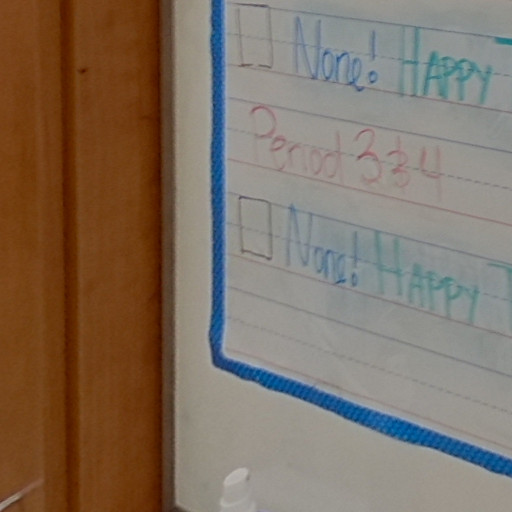 None! HAPPY T
Period 3 & 4
None! HAPPY T